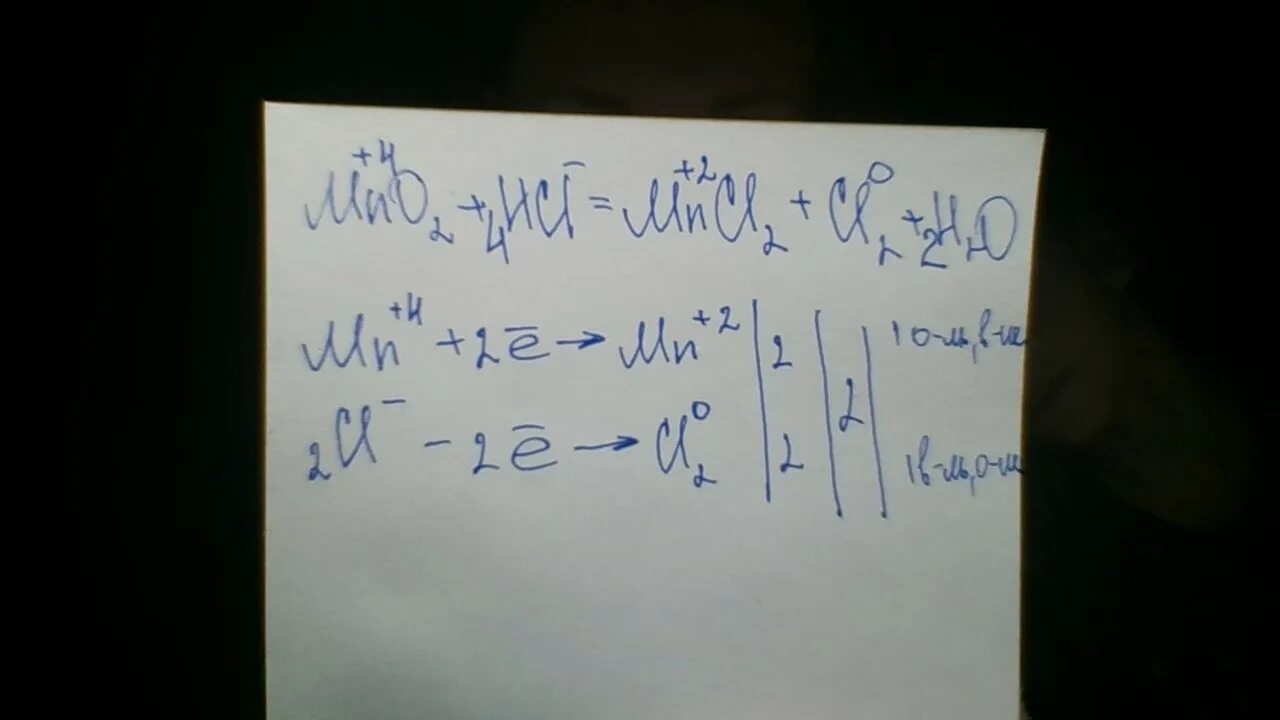 Mn⁺⁴O₂ + 4HCl⁻ = Mn⁺²Cl₂ + Cl₂⁰ + 2H₂O
Mn⁺⁴ + 2ē → Mn⁺² | 2 | | 1 о-ль, в-ие
2Cl⁻ - 2ē → Cl₂⁰ | 2 | 2 | 1 в-ль, о-ие